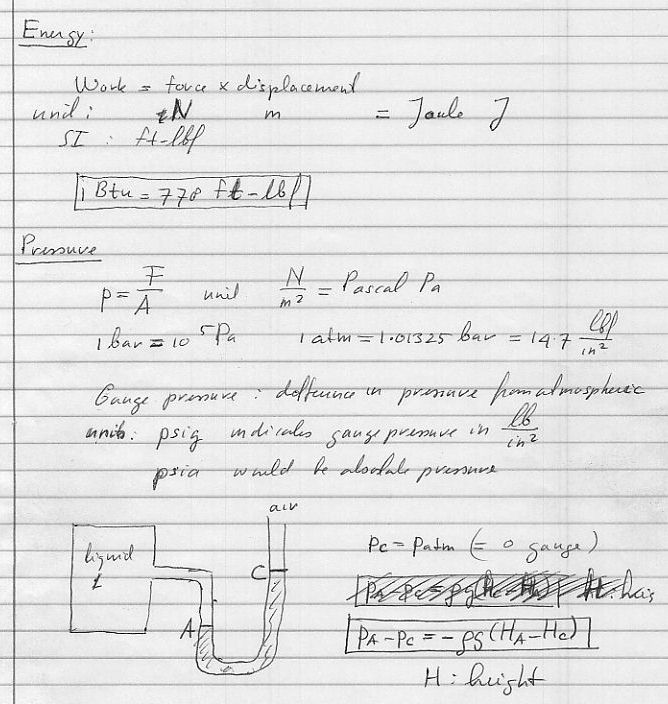 Energy:
Work = force x displacement
unit: N m = Joule J
SI : ft-lbf
1 Btu = 778 ft-lbf
Pressure
p = F/A unit N/m² = Pascal Pa
1 bar = 10⁵ Pa 1 atm = 1.01325 bar = 14.7 lbf/in²
Gauge pressure : difference in pressure from atmospheric
units: psig indicates gauge pressure in lb/in²
psia would be absolute pressure
air
liquid
L
C
A
Pc = Patm (= 0 gauge)
PA - Pc = -ρg (HA - Hc)
H : height